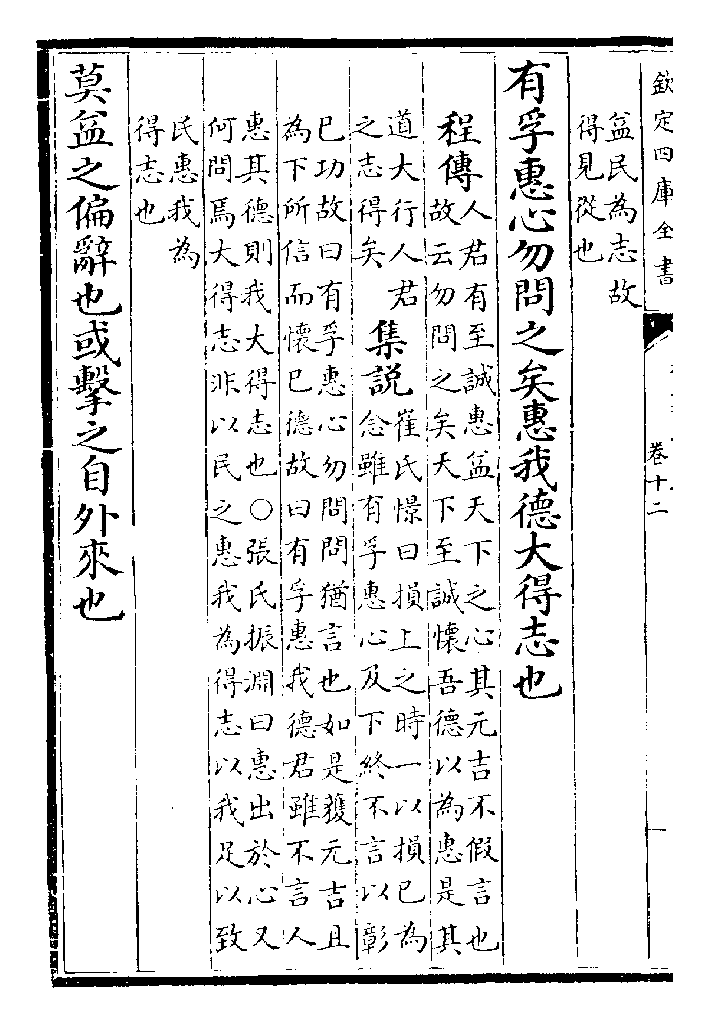 欽定四庫全書
卷十二
益民為志故
得見從也
有孚惠心勿問之矣惠我德大得志也
程傳
人君有至誠惠益天下之心其元吉不假言也
故云勿問之矣天下至誠懷吾德以為惠是其
道大行人君
之志得矣
集説
崔氏憬曰損上之時一以損已為
念雖有孚惠心及下終不言以彰
已功故曰有孚惠心勿問問猶言也如是獲元吉且
為下所信而懷已德故曰有孚惠我德君雖不言人
惠其德則我大得志也○張氏振淵曰惠出於心又
何問焉大得志非以民之惠我為得志以我足以致
民惠我為
得志也
莫益之偏辭也或擊之自外來也